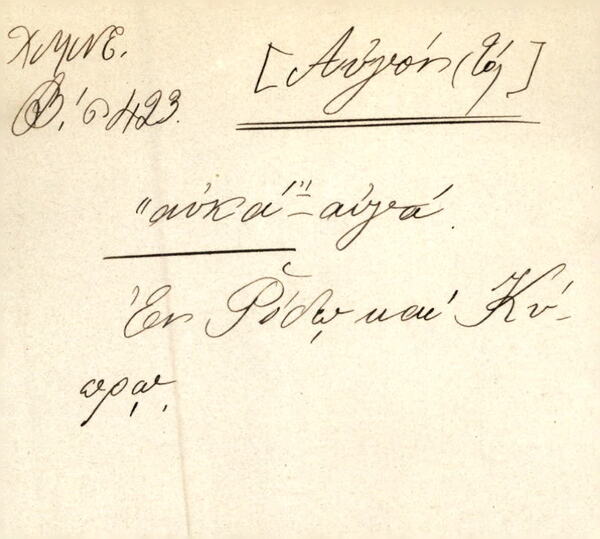 ΧΜΝΕ.
Β΄. σ 423.
[Αὐγόν (τό)]
"αὐκά"=αὐγά.
Ἐν Ῥόδῳ καί Κύ-
πρῳ.